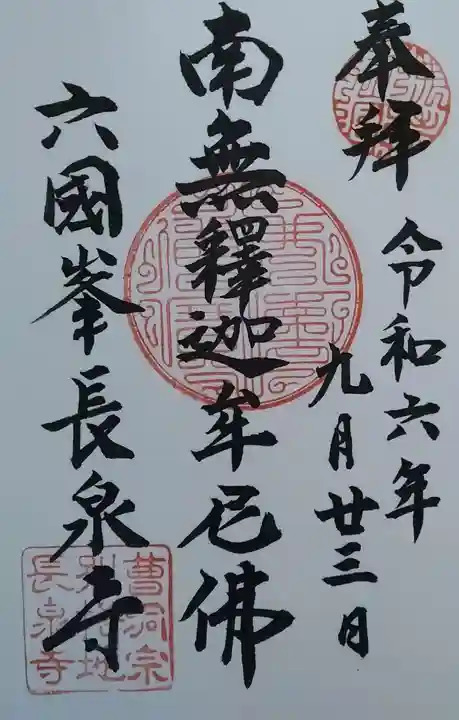 奉拜
令和六年
九月廿三日
南無釋迦牟尼佛
六國峯長泉寺
曹洞宗
長泉寺